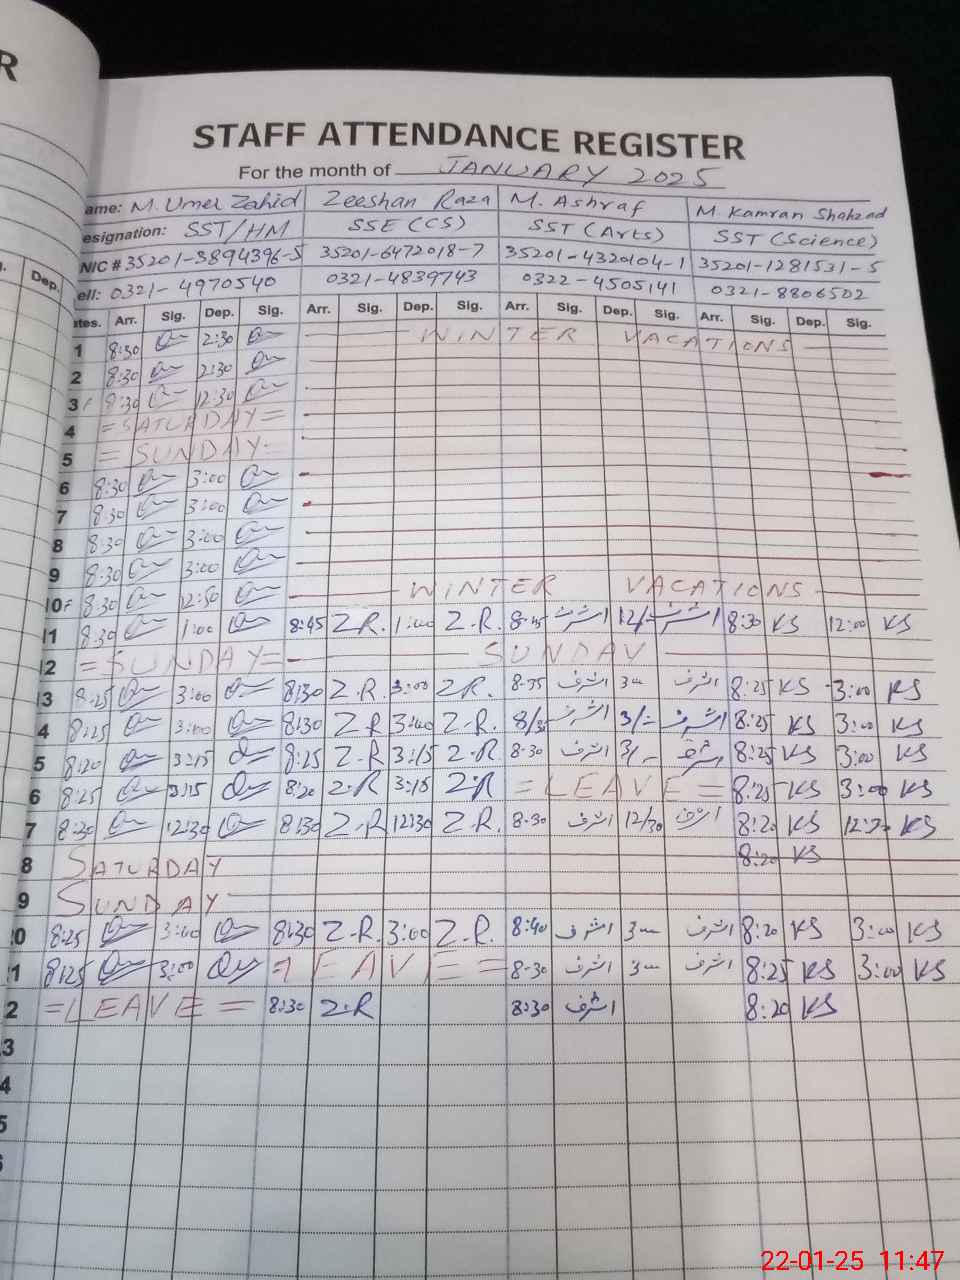 R
STAFF ATTENDANCE REGISTER
For the month of JANUARY 2025
ame: M. Umer Zahid Zeeshan Raza M. Ashraf M. Kamran Shahzad
esignation: SST/HM SSE (CS) SST (Arts) SST (Science)
NIC # 35201-3894396-5 35201-6472018-7 35201-4320104-1 35201-1281531-5
ell: 0321-4970540 0321-4839743 0322-4505141 0321-8806502
Dep.
ates. Arr. Sig. Dep. Sig. Arr. Sig. Dep. Sig. Arr. Sig. Dep. Sig. Arr. Sig. Dep. Sig.
1 8:30 2:30 WINTER VACATIONS
2 8:30 2:30
3 8:30 12:30
4 = SATURDAY =
5 = SUNDAY =
6 8:30 3:00
7 8:30 3:00
8 8:30 3:00
9 8:30 3:00
10F 8:30 12:30 WINTER VACATIONS
11 8:30 1:00 8:45 Z.R. 1:00 Z.R. 8-45 اشرف 12/= اشرف 8:30 KS 12:00 KS
12 = SUNDAY = SUNDAY
13 8:25 3:00 8:30 Z.R. 3:00 Z.R. اشرف 3= اشرف 8:25 KS 3:00 KS
4 8:25 3:00 8:30 Z.R 3:00 Z.R. 8/30 اشرف 3/= اشرف 8:25 KS 3:00 KS
5 8:20 3:15 8:25 Z.R 3:15 Z.R 8-30 اشرف 3/- اشرف 8:25 KS 3:00 KS
6 8:25 3:15 8:20 Z.R 3:15 Z.R = LEAVE = 8:25 KS 3:00 KS
7 8:20 12:30 8:30 Z.R 12:30 Z.R. 8-30 اشرف 12/30 اشرف 8:20 KS 12:30 KS
8 SATURDAY 8:20 KS
9 SUNDAY
20 8:25 3:00 8:30 Z.R. 3:00 Z.R. 8:40 اشرف 3= اشرف 8:20 KS 3:00 KS
1 8:25 3:00 = LEAVE = 8-30 اشرف 3= اشرف 8:25 KS 3:00 KS
2 = LEAVE = 8:30 Z.R 8:30 اشرف 8:20 KS
3
4
5
22-01-25 11:47